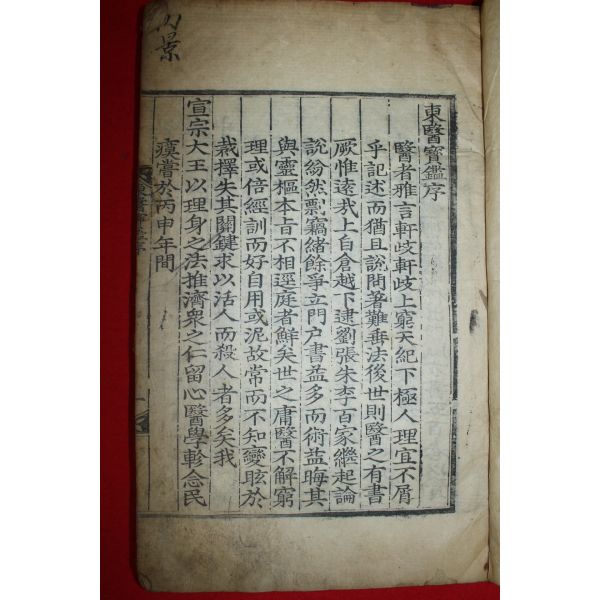 東醫寶鑑序
醫者雅言軒歧軒歧上窮天紀下極人理宜不屑
乎記述而猶且說問著難垂法後世則醫之有書
厥惟遠哉上自倉越下逮劉張朱李百家繼起論
說紛然剽竊緖餘爭立門戶書益多而術益晦其
與靈樞本旨不相逕庭者鮮矣世之庸醫不解窮
理或倍經訓而好自用或泥故常而不知變眩於
裁擇失其關鍵求以活人而殺人者多矣我
宣宗大王以理身之法推濟衆之仁留心醫學軫念民
瘼嘗於丙申年間
景